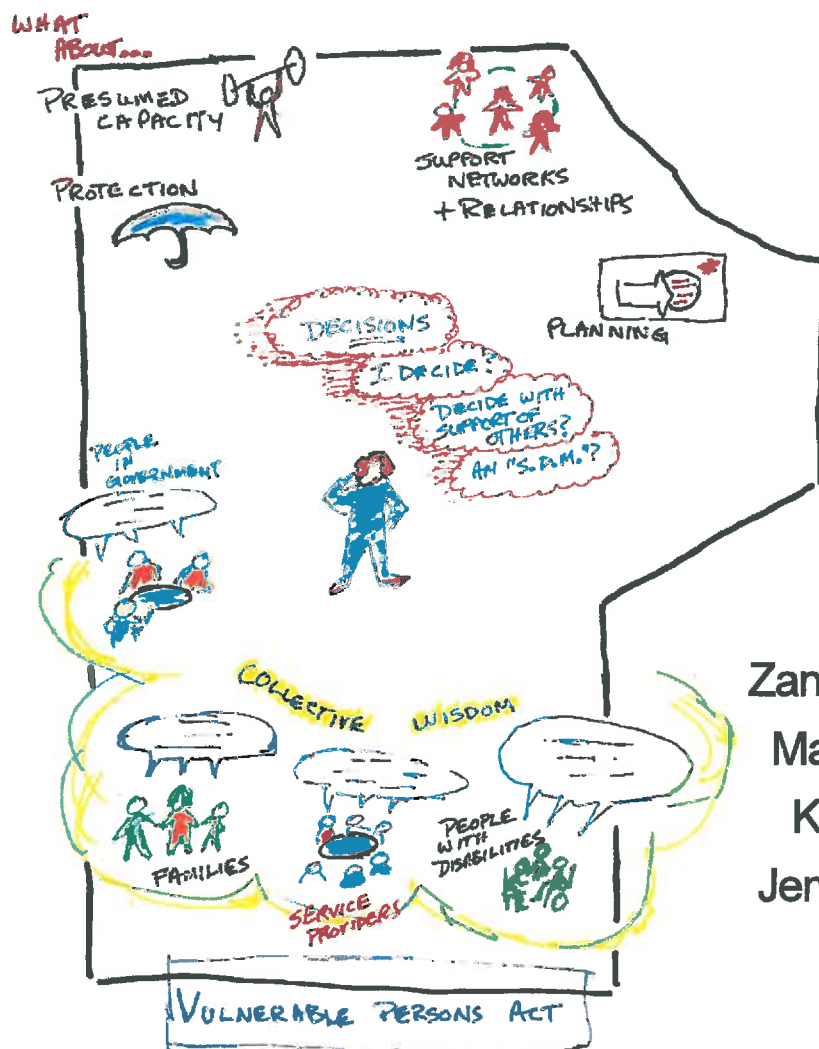 WHAT
ABOUT...
PRESUMED
CAPACITY
SUPPORT
NETWORKS
+ RELATIONSHIPS
PROTECTION
PLANNING
DECISIONS
I DECIDE?
DECIDE WITH
SUPPORT OF
OTHERS?
AN "S.D.M."?
PEOPLE
IN
GOVERNMENT
COLLECTIVE WISDOM
FAMILIES
SERVICE
PROVIDERS
PEOPLE
WITH
DISABILITIES
VULNERABLE PERSONS ACT
Zan
Ma
K
Jer